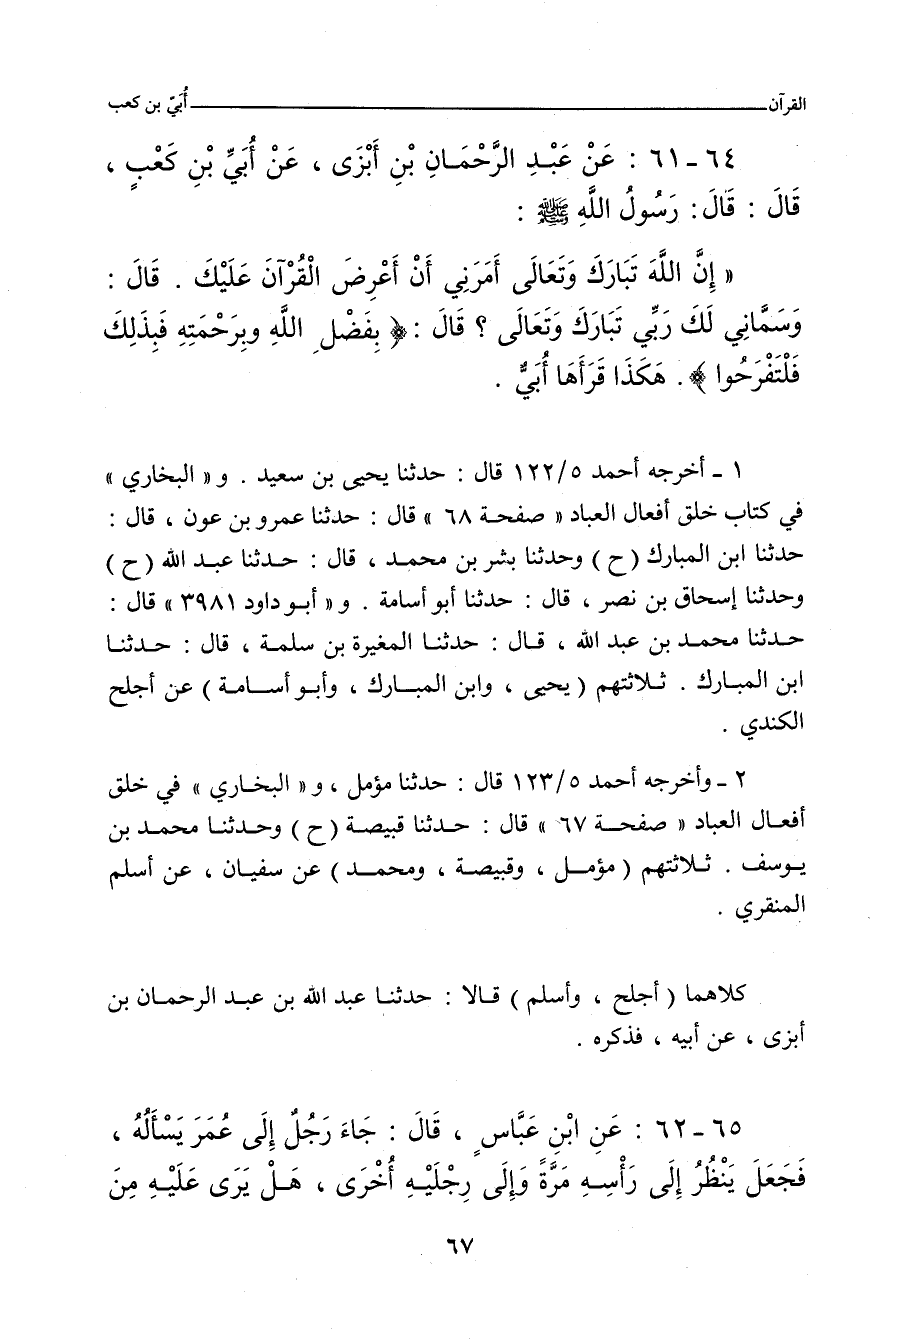 القرآن ــــــــــــــــ أُبَيّ بن كعب
٦٤ ـ ٦١ : عَنْ عَبْدِ الرَّحْمَانِ بْنِ أَبْزَى ، عَنْ أُبَيِّ بْنِ كَعْبٍ ،
قَالَ : قَالَ: رَسُولُ اللَّهِ ﷺ :
« إِنَّ اللَّهَ تَبَارَكَ وَتَعَالَى أَمَرَنِي أَنْ أَعْرِضَ الْقُرْآنَ عَلَيْكَ . قَالَ :
وَسَمَّانِي لَكَ رَبِّي تَبَارَكَ وَتَعَالَى ؟ قَالَ : ﴿ بِفَضْلِ اللَّهِ وبِرَحْمَتِهِ فَبِذَلِكَ
فَلْتَفْرَحُوا ﴾ . هَكَذَا قَرَأَهَا أُبَيٌّ .
١ ـ أخرجه أحمد ١٢٢/٥ قال : حدثنا يحيى بن سعيد . و « البخاري »
في كتاب خلق أفعال العباد « صفحة ٦٨ » قال : حدثنا عمرو بن عون ، قال :
حدثنا ابن المبارك ( ح ) وحدثنا بشر بن محمد ، قال : حدثنا عبد الله ( ح )
وحدثنا إسحاق بن نصر ، قال : حدثنا أبو أسامة . و « أبو داود ٣٩٨١ » قال :
حدثنا محمد بن عبد الله ، قال : حدثنا المغيرة بن سلمة ، قال : حدثنا
ابن المبارك . ثلاثتهم ( يحيى ، وابن المبارك ، وأبو أسامة ) عن أجلح
الكندي .
٢ ـ وأخرجه أحمد ١٢٣/٥ قال : حدثنا مؤمل ، و « البخاري » في خلق
أفعال العباد « صفحة ٦٧ » قال : حدثنا قبيصة ( ح ) وحدثنا محمد بن
يوسف . ثلاثتهم ( مؤمل ، وقبيصة ، ومحمد ) عن سفيان ، عن أسلم
المنقري .
كلاهما ( أجلح ، وأسلم ) قالا : حدثنا عبد الله بن عبد الرحمان بن
أبزى ، عن أبيه ، فذكره .
٦٥ ـ ٦٢ : عَنِ ابْنِ عَبَّاسٍ ، قَالَ : جَاءَ رَجُلٌ إِلَى عُمَرَ يَسْأَلُهُ ،
فَجَعَلَ يَنْظُرُ إِلَى رَأْسِهِ مَرَّةً وَإِلَى رِجْلَيْهِ أُخْرَى ، هَلْ يَرَى عَلَيْهِ مِنَ
٦٧